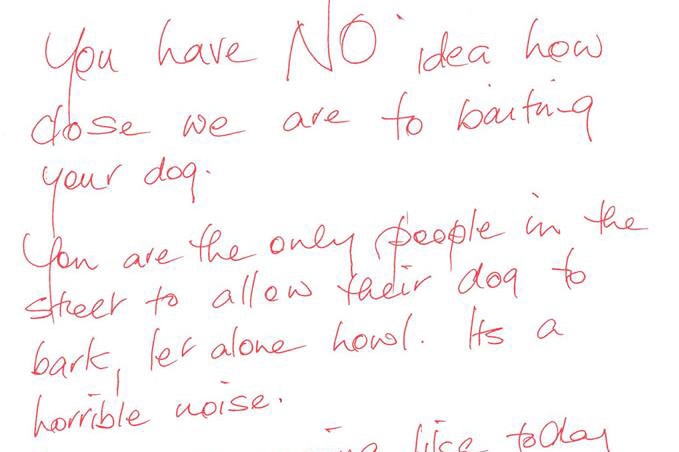 You have NO idea how
close we are to baiting
your dog.
You are the only people in the
street to allow their dog to
bark, let alone howl. Its a
horrible noise.
like today